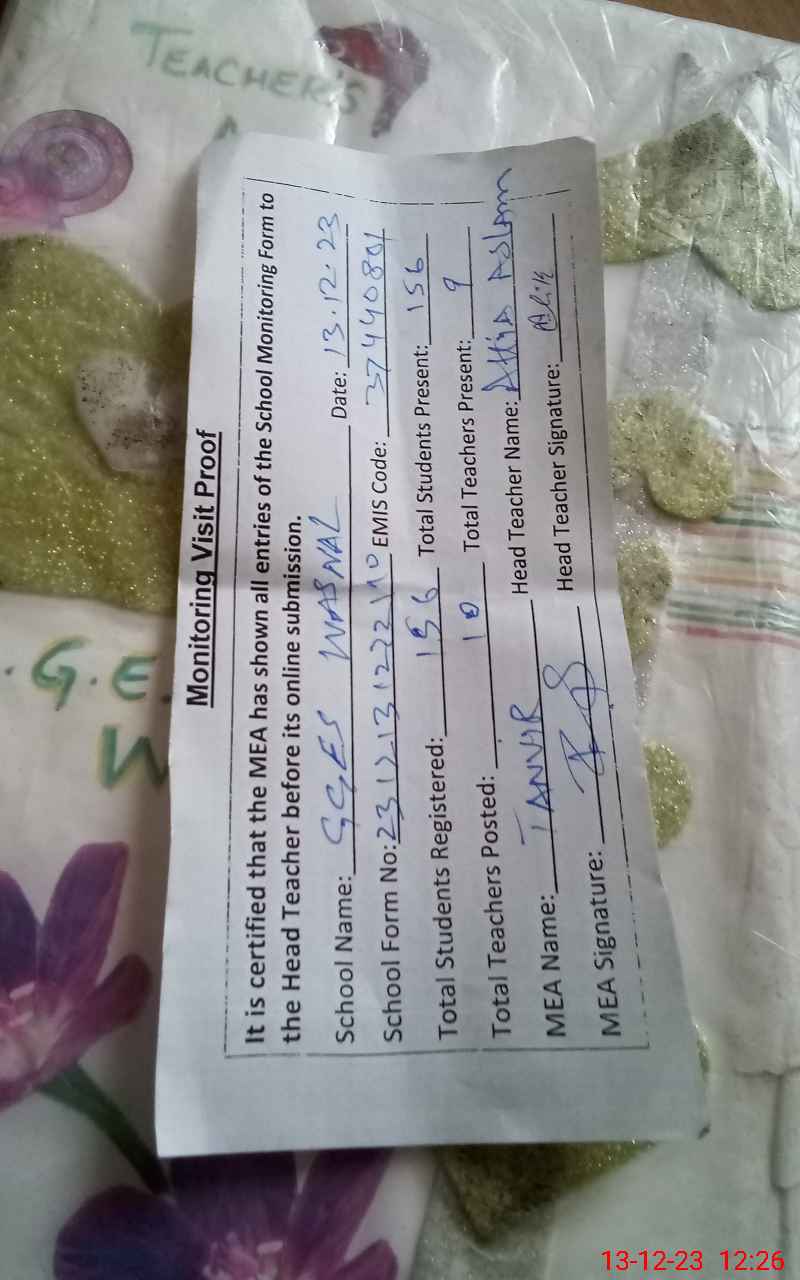 TEACHER'S
A
Monitoring Visit Proof
It is certified that the MEA has shown all entries of the School Monitoring Form to
the Head Teacher before its online submission.
School Name: GGES WASNAL Date: 13.12.23
School Form No: EMIS Code: 37440801
Total Students Registered: 156 Total Students Present: 156
Total Teachers Posted: 10 Total Teachers Present: 9
MEA Name: TANVIR Head Teacher Name: Attia Aslam
MEA Signature: Head Teacher Signature:
.G.E.
W
13-12-23 12:26